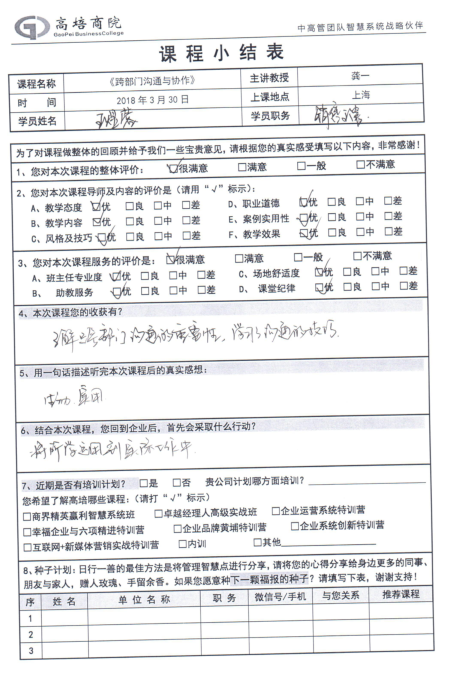 高培商院
GaoPei BusinessCollege
中高管团队智慧系统战略伙伴
课程小结表
课程名称 《跨部门沟通与协作》 主讲教授 龚一
时 间 2018 年 3 月 30 日 上课地点 上海
学员姓名 学员职务
为了对课程做整体的回顾并给予我们一些宝贵意见,请根据您的真实感受填写以下内容,非常感谢!
1、您对本次课程的整体评价: ☑很满意 □满意 □一般 □不满意
2、您对本次课程导师及内容的评价是(请用“√”标示):
A、教学态度 ☑优 □良 □中 □差 D、职业道德 ☑优 □良 □中 □差
B、教学内容 ☑优 □良 □中 □差 E、案例实用性 ☑优 □良 □中 □差
C、风格及技巧 ☑优 □良 □中 □差 F、教学效果 ☑优 □良 □中 □差
3、您对本次课程服务的评价是: ☑很满意 □满意 □一般 □不满意
A、班主任专业度 ☑优 □良 □中 □差 C、场地舒适度 ☑优 □良 □中 □差
B、 助教服务 ☑优 □良 □中 □差 D、 课堂纪律 ☑优 □良 □中 □差
4、本次课程您的收获有?
了解跨部门沟通的重要性,学习沟通的技巧.
5、用一句话描述听完本次课程后的真实感想:
生动 实用
6、结合本次课程,您回到企业后,首先会采取什么行动?
将所学运用到实际工作中
7、近期是否有培训计划? □是 □否 贵公司计划哪方面培训?
您希望了解高培哪些课程:(请打“√”标示)
□商界精英赢利智慧系统班 □卓越经理人高级实战班 □企业运营系统特训营
□幸福企业与六项精进特训营 □企业品牌黄埔特训营 □企业系统创新特训营
□互联网+新媒体营销实战特训营 □内训 □其他
8、种子计划:日行一善的最佳方法是将管理智慧点进行分享,请将您的心得分享给身边更多的同事、
朋友与家人,赠人玫瑰、手留余香。如果您愿意种下一颗福报的种子?请填写下表,谢谢支持!
序 姓 名 单 位 名 称 职 务 微信号/手机 与您关系 推荐课程
1
2
3